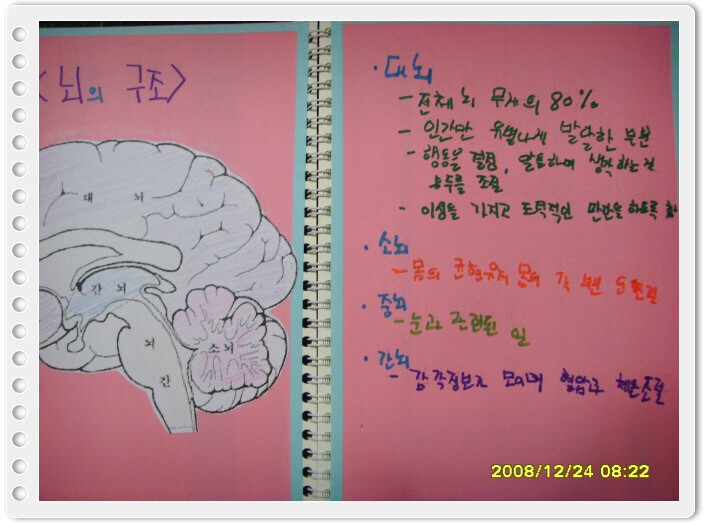 <뇌의 구조>
대 뇌
간 뇌
뇌
간
소뇌
· 대뇌
- 전체 뇌 무게의 80%
- 인간만 유별나게 발달한 부분
- 행동을 결정, 말을하며 생각하는것
모두를 조절
- 이성을 가지고 도덕적인 판단을 하도록 함
· 소뇌
- 몸의 균형유지 몸의 각
· 중뇌
- 눈과 관련된 일
· 간뇌
- 감각정보가 모이며 혈압과 체온조절
2008/12/24 08:22